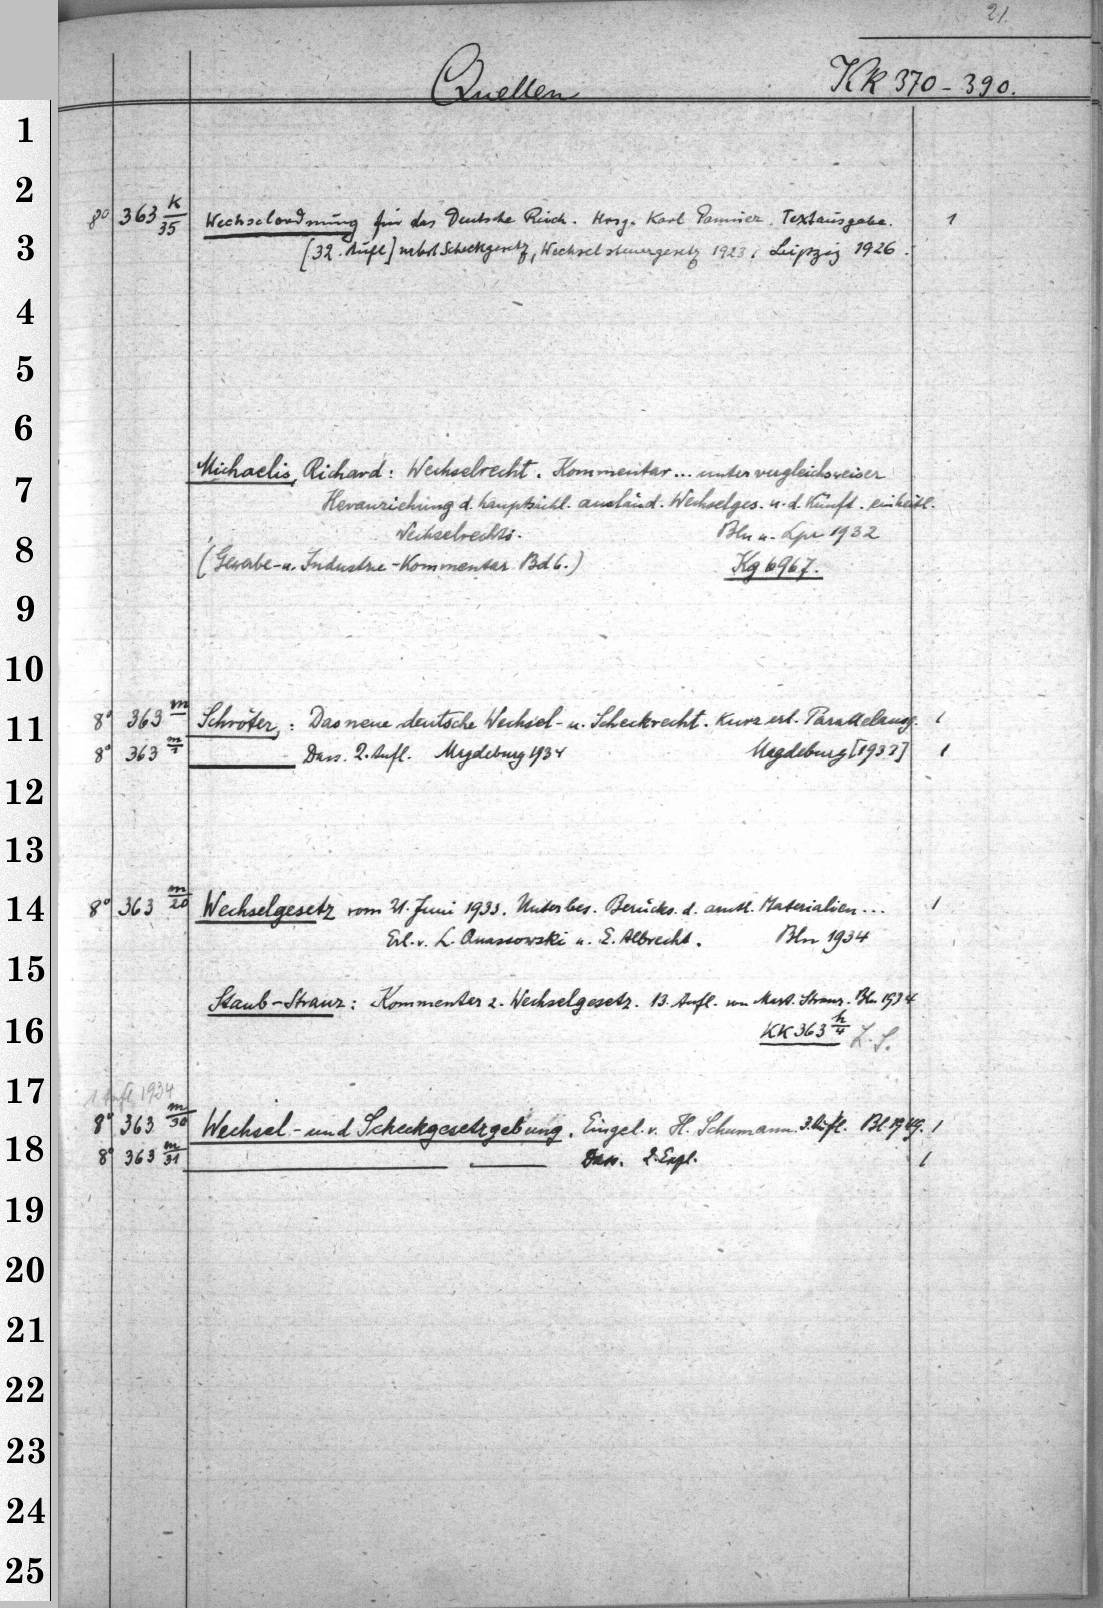 21.
Quellen KK 370-390.
1
2
8° 363 K/35 Wechselordnung für das Deutsche Reich. Hrsg. Karl Pannier. Textausgabe. 1
3
[32. Aufl] nebst Scheckgesetz, Wechselsteuergesetz 1923. Leipzig 1926.
4
5
6
7
Michaelis, Richard: Wechselrecht. Kommentar... unter vergleichsweiser
Heranziehung d. hauptsächl. ausländ. Wechselges. u. d. Künft. einheitl.
8
Wechselrechts. Bln u. Lpz 1932
(Gewerbe- u. Industrie-Kommentar Bd 6.) Kg 6967.
9
10
11
8° 363 m Schröter, : Das neue deutsche Wechsel- u. Scheckrecht. Kurz erl. Parallelausg. 1
8° 363 m/1 Dass. 2. Aufl. Magdeburg 1934 Magdeburg [1933] 1
12
13
14
8° 363 m/20 Wechselgesetz vom 21. Juni 1933. Unter bes. Berücks. d. amtl. Materialien... 1
Erl. v. L. Quassowski u. E. Albrecht. Bln 1934
15
Staub-Stranz: Kommentar z. Wechselgesetz. 13. Aufl. von Mart. Stranz. Bln 1934
16
KK 363 h/4 L. S.
17
1 Aufl. 1934
8° 363 m/30 Wechsel- und Scheckgesetzgebung. Eingel. v. H. Schumann. 3. Aufl. Bl. 1949. 1
18
8° 363 m/31 Dass. 2. Expl. 1
19
20
21
22
23
24
25